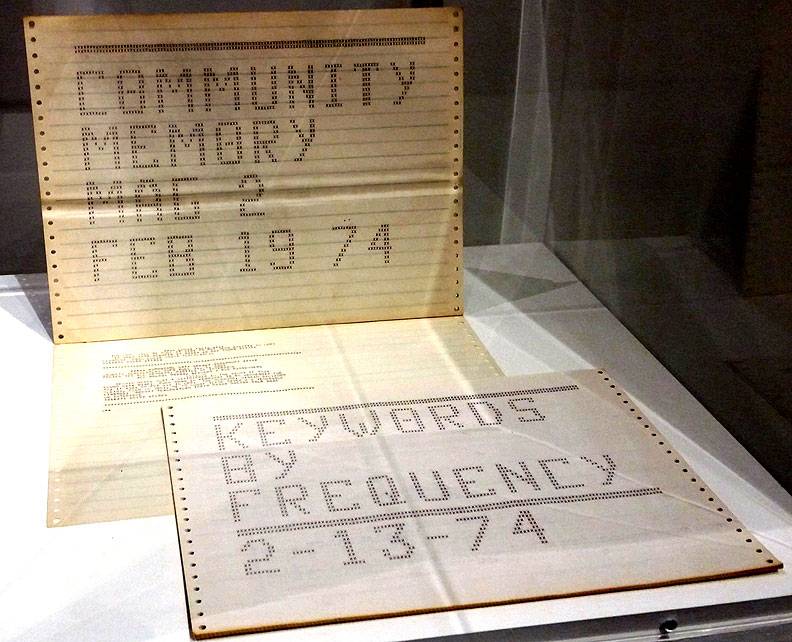 COMMUNITY
MEMORY
MAG 2
FEB 19 74
KEYWORDS
BY
FREQUENCY
2-13-74